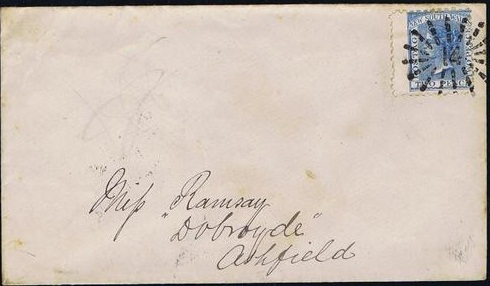 NEW SOUTH WALES
POSTAGE
TWO PENCE
Miss Ramsay
"Dobroyde"
Ashfield